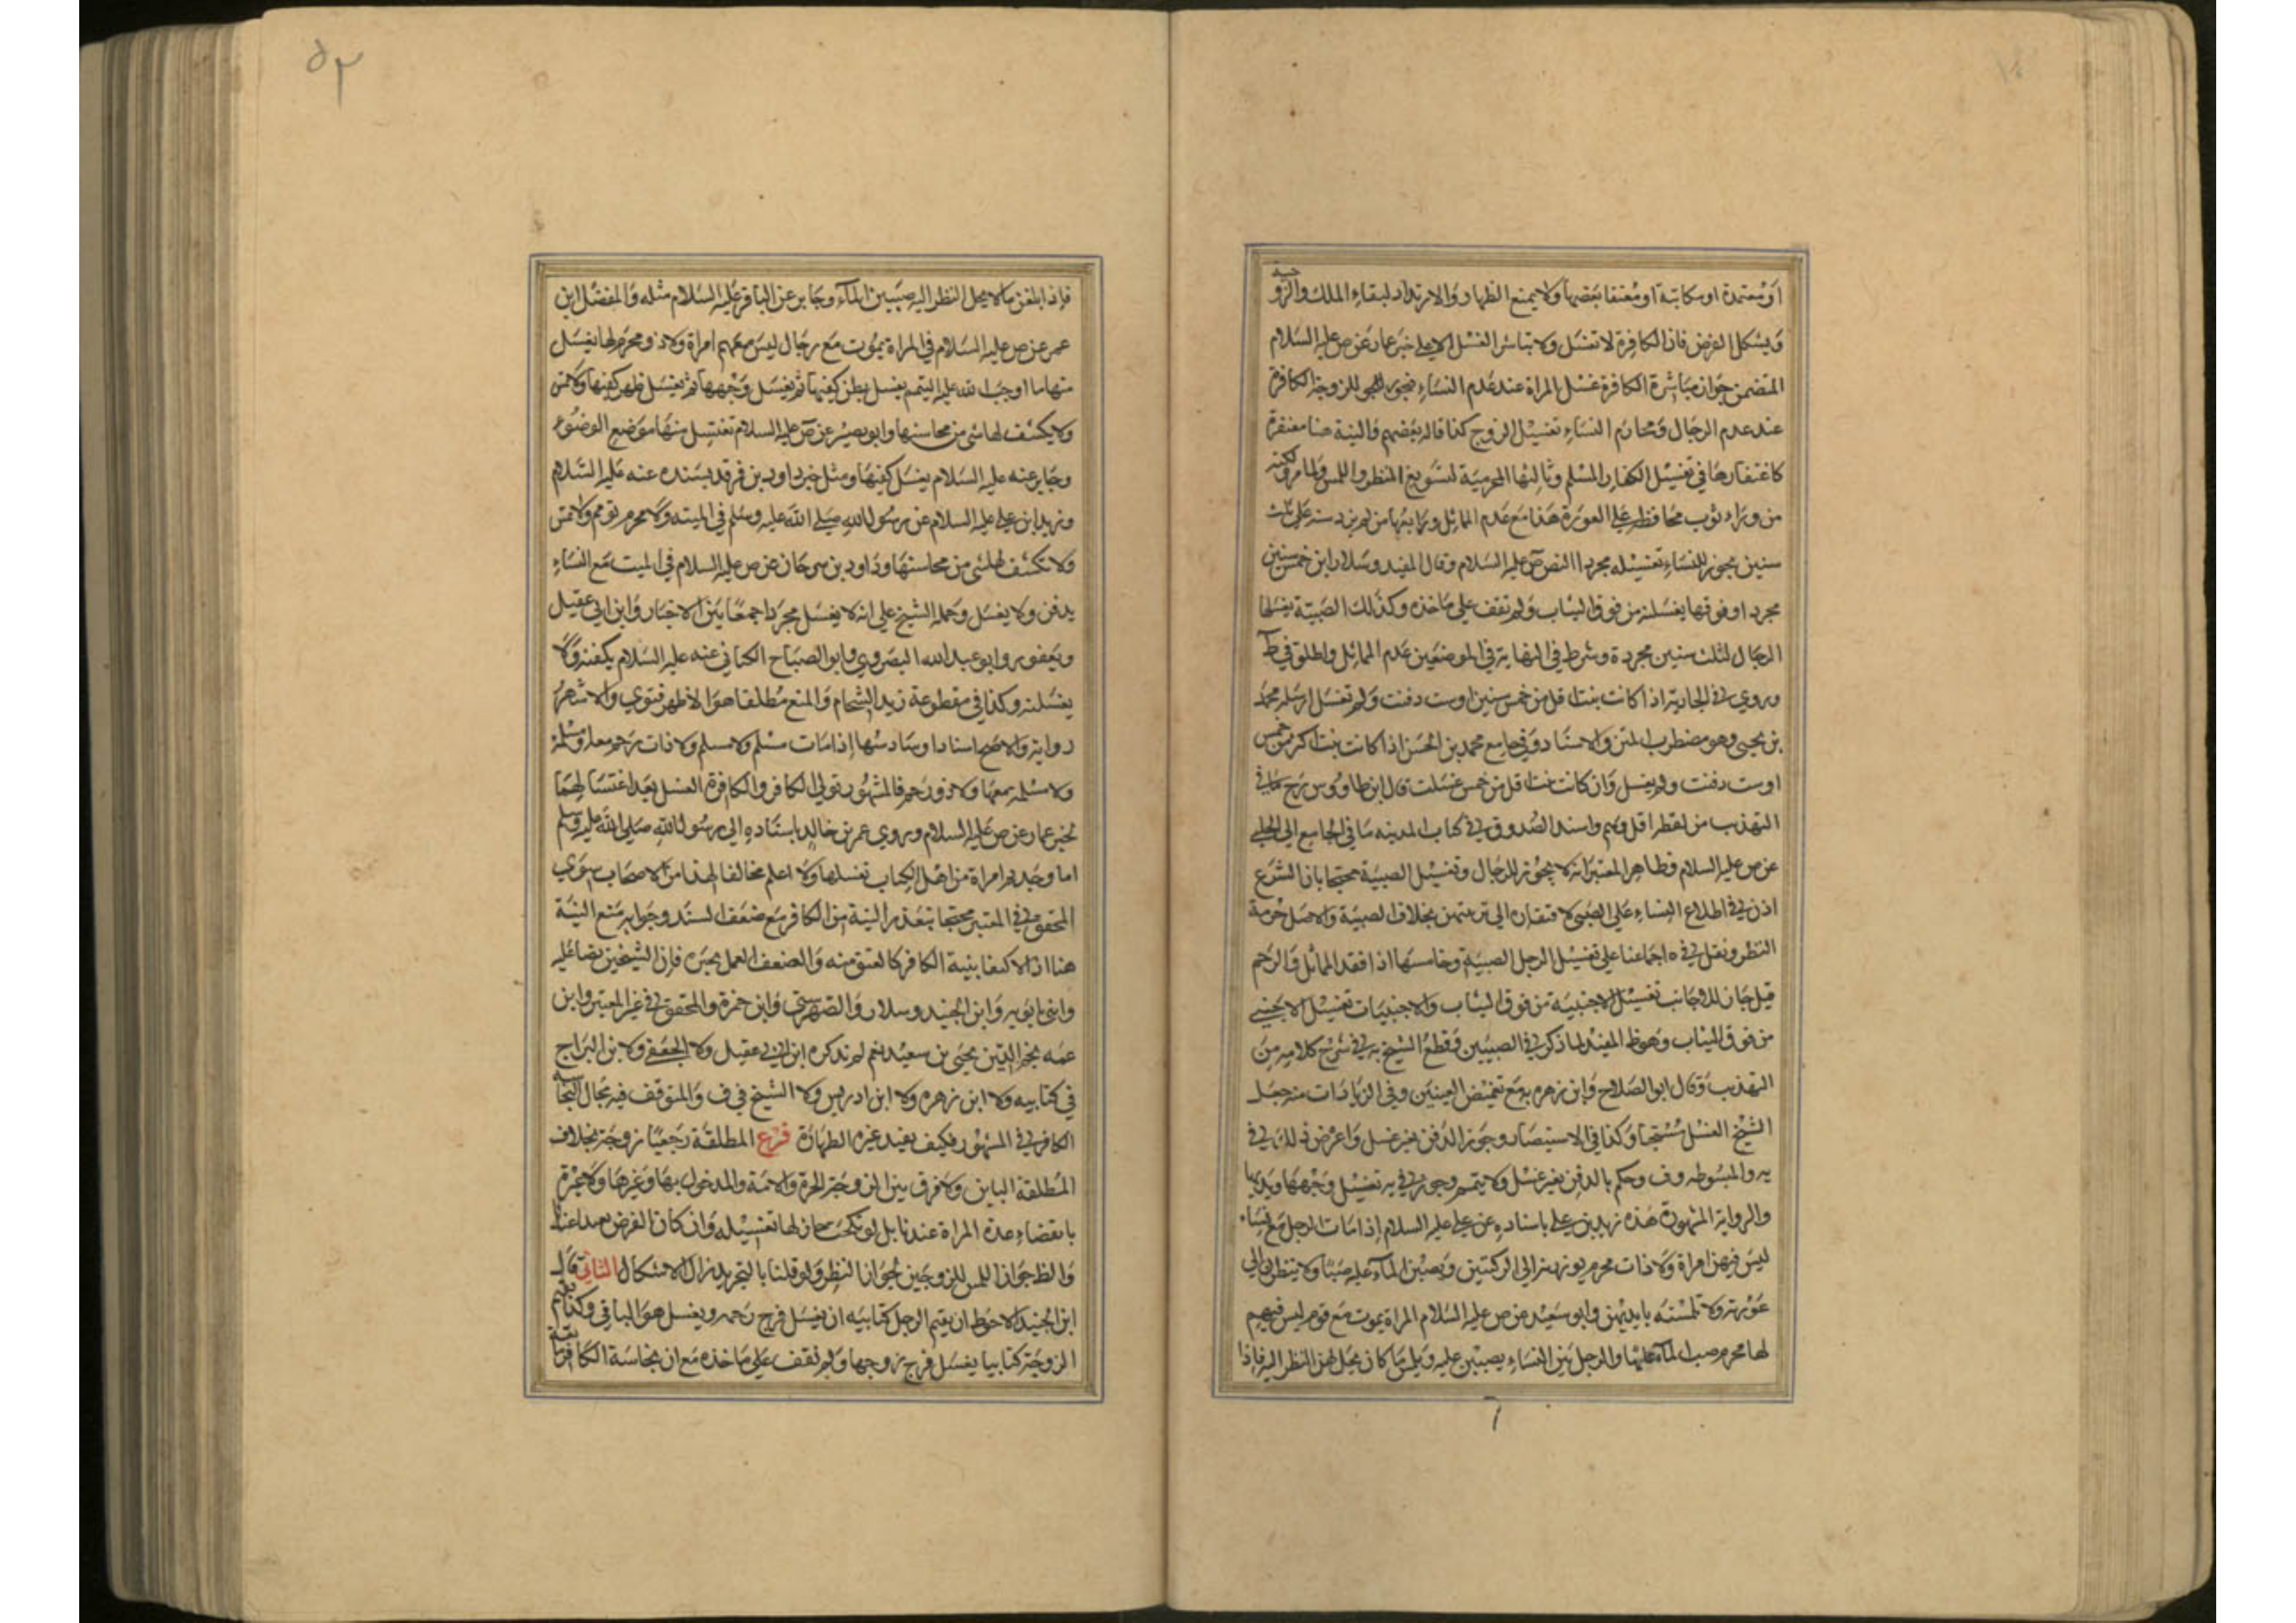 او معتمدة او مكاتبة او معتقا بعضها ولا يمنع الظهار والارتداد لبقاء الملك والزوجية
ويشكل الفرض فان الكافرة لا تغسل ولا تباشر الغسل الا على خبر عمار عن ص عليه السلام
المتضمن جواز مباشرة الكافرة غسل المراة عند عدم النساء للزوجة الكافرة
عند عدم الرجال ومحارم النساء تغسيل الزوج كذا قاله بعضهم والنية هنا مغتفرة
كاغتفارها في تغسيل الكفار المسلم وثالثها المحرمية لتسويغ النظر واللمس ولما مر ولكنه
من وراء ثوب محافظة على العورة هذا مع عدم المماثل ورابعها من لم يزد سنه على ثلث
سنين يجوز للنساء تغسيله مجردا النص ص عليه السلام وقال المفيد وسلار ابن خمس سنين
مجردا وفوقها يغسلنه من فوق الثياب ولم نقف على ماخذه وكذلك الصبية يغسلها
الرجال لثلث سنين مجردة وشرط في النهاية في الموضعين عدم المماثل واطلق في ط
وروي في الجارية اذا كانت بنت اقل من خمس سنين اوست دفنت ولم تغسل ارسله محمد
بن يحيى وهو مضطرب المتن والاسناد وفي جامع محمد بن الحسن اذا كانت بنت اكثر من خمس
اوست دفنت ولم يغسل وان كانت بنت اقل من خمس غسلت قال ابن طاووس رح ما في
التهذيب من لفظ اقل وهم واسند الصدوق في كتاب المدينه ما في الجامع الى الحلبي
عن ص عليه السلام وظاهر المعتبر انه لا يجوز للرجال وتغسيل الصبية محتجا بان الشرع
اذن في اطلاع النساء على الصبي لافتقاره الى تربيتهن بخلاف الصبية والاصل حرمة
النظر ونقل في ه اجماعنا على تغسيل الرجل الصبية وخامسها اذا فقد المماثل والرحم
قيل جاز للاجانب تغسيل الاجنبية من فوق الثياب والاجنبيات تغسيل الاجنبي
من فوق الثياب وهو ظ المفيد لما ذكر في الصبيين وقطع الشيخ به في شرح كلامه من
التهذيب وقال ابو الصلاح وابن زهره به مع تغميض العينين وفي الزيادات منه جعل
الشيخ الغسل مستحبا وكذا في الاستبصار وجوز الدفن بغير غسل واعرض في ذلك في
يه والمبسوط و ف وحكم بالدفن بغير غسل ولا يتمم وجوز في يه تغسيل وجهها ويديها
والرواية المشهورة هذه زيد بن علي باسناده عن علي عليه السلام اذا مات الرجل مع نساء
ليس فيهن امراة ولا ذات محرم يوزرنه الى الركبتين ويصببن الماء عليه صبا ولا ينظرن الى
عورته ولا تلمسنه بايديهن وابو سعيد عن ص عليه السلام المراة يموت مع قوم ليس فيهم
لها محرم صب الماء عليها والرجل بين النساء يصببن عليه ويلمس ما كان يحل لهن النظر اليه فاذا
٥٢
فاذا بلغن ما لا يحل النظر اليه صببن الماء وجابر عن الباقر عليه السلام مثله والمفضل ابن
عمر عن ص عليه السلام في المراة يموت مع رجال ليس معهم امراة ولا ذو محرم لها يغسل
منها ما اوجب الله عليه التيمم يغسل بطن كفيها ثم يغسل وجهها ثم يغسل ظهر كفيها ولا تمس
ولا يكشف لها شي من محاسنها وابو بصير عن ص عليه السلام تغتسل منها موضع الوضوء
وجابر عنه عليه السلام يغسل كفيها ومثل خبر داود بن فرقد بسنده عنه عليه السلام
وزيد ابن علي عليه السلام عن رسول الله صلى الله عليه وسلم في الميتة ولا محرم تؤمم ولا تمس
ولا تكشف لها شي من محاسنها وداود بن سرحان عن ص عليه السلام في الميت مع النساء
يدفن ولا يغسل وحمله الشيخ على انه لا يغسل مجردا جمعا بين الاخبار وابن ابي عقيل
ويعفور وابو عبد الله البصروي وابو الصباح الكناني عنه عليه السلام يكفنه ولا
يغسلنه وكذا في مقطوعة زيد الشحام والمنع مطلقا هو الاظهر فتوي والاشهر
رواية والاصح اسنادا وسادسها اذا مات مسلم ولا مسلم ولا ذات رحم معه او مسلمة
ولا مسلمة معها ولا ذو رحم فالمشهور تولي الكافر والكافرة الغسل بعد اغتسالهما
لخبر عمار عن ص عليه السلام وروي عمر بن خالد باسناده الى رسول الله صلى الله عليه وسلم
اما وجدتم امراة من اهل الكتاب تغسلها ولا اعلم مخالفا لهذا من الاصحاب سوي
المحقق في المعتبر محتجا بتعذر النية من الكافر مع ضعف السند وجوابه منع النية
هنا اذ الاكتفا بنية الكافر كالعتق منه والضعف العمل يجبره فان الشيخين نصا عليه
وابني بابويه وابن الجنيد وسلار والصهرشتي وابن حمزة والمحقق في غير المعتبر وابن
عمه نجم الدين يحيى بن سعيد نعم لم نذكره ابن ابي عقيل ولا الجعفي ولا ابن البراج
في كتابيه ولا ابن زهره ولا ابن ادريس ولا الشيخ في ف والمتوقف فيه مجال لنجاسة
الكافر في المشهور فكيف يفيد غيره الطهارة فرع المطلقة رجعيا زوجة بخلاف
المطلقة البائن ولا فرق بين الزوجة الحرة والامة والمدخول بها وغيرها ولا عبرة
بانقضاء عدة المراة عندنا بل لو نكحت جاز لها تغسيله وان كان الفرض بعيدا عندنا
والظ جواز اللمس للزوجين لجواز النظر ولو قلنا بالتجريد زال الاشكال الثاني قال
ابن الجنيد الاحوط ان يقيم الرجل كتابيه ان يغسل فرج رحمه ويغسل هو الباقي وكذا تقيم
الزوجة كتابيا يغسل فرج زوجها ولم نقف على ماخذه مع ان نجاسة الكافر مانعة